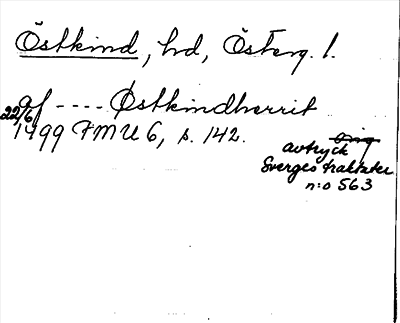 Östkind, hd, Österg. l.
af ---- Østkindherrit
22/6 1499 FMU 6, s. 142.
orig
avtryck
Sverges traktater
n:o 563